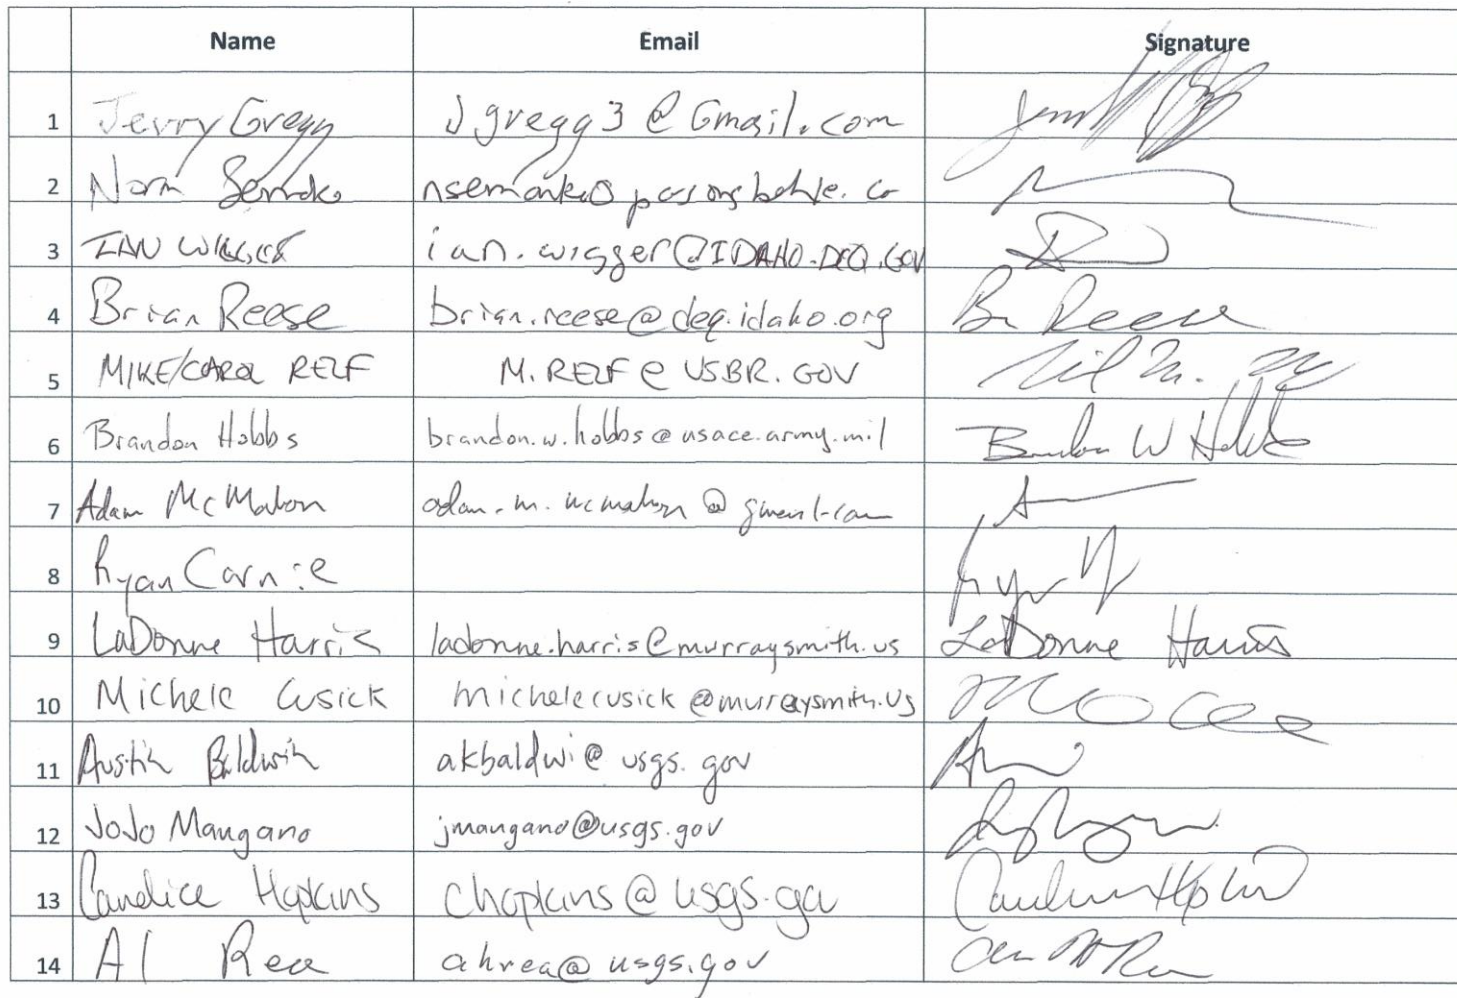 Name Email Signature
1 Jerry Gregg Jgregg3@Gmail.com
2 Norm Semanko nsemanko@parsonsbehle.co
3 IAN WIGGER ian.wigger@IDAHO.DEQ.GOV
4 Brian Reese brian.reese@deq.idaho.org Br Reese
5 MIKE/CAROL RELF M.RELF@USBR.GOV
6 Brandon Hobbs brandon.w.hobbs@usace.army.mil Brandon W Hobbs
7 Adam McMahon adam.m.mcmahon@gmail.com
8 Ryan Carnie
9 LaDonne Harris ladonne.harris@murraysmith.us LaDonne Harris
10 Michele Cusick michelecusick@murraysmith.us
11 Austin Baldwin akbaldwi@usgs.gov
12 JoJo Mangano jmangano@usgs.gov
13 Candice Hopkins chopkins@usgs.gov Candice Hopkins
14 Al Rea ahrea@usgs.gov